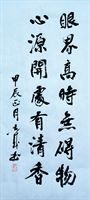 眼界高時無碍物
心源開處有清香
甲辰正月